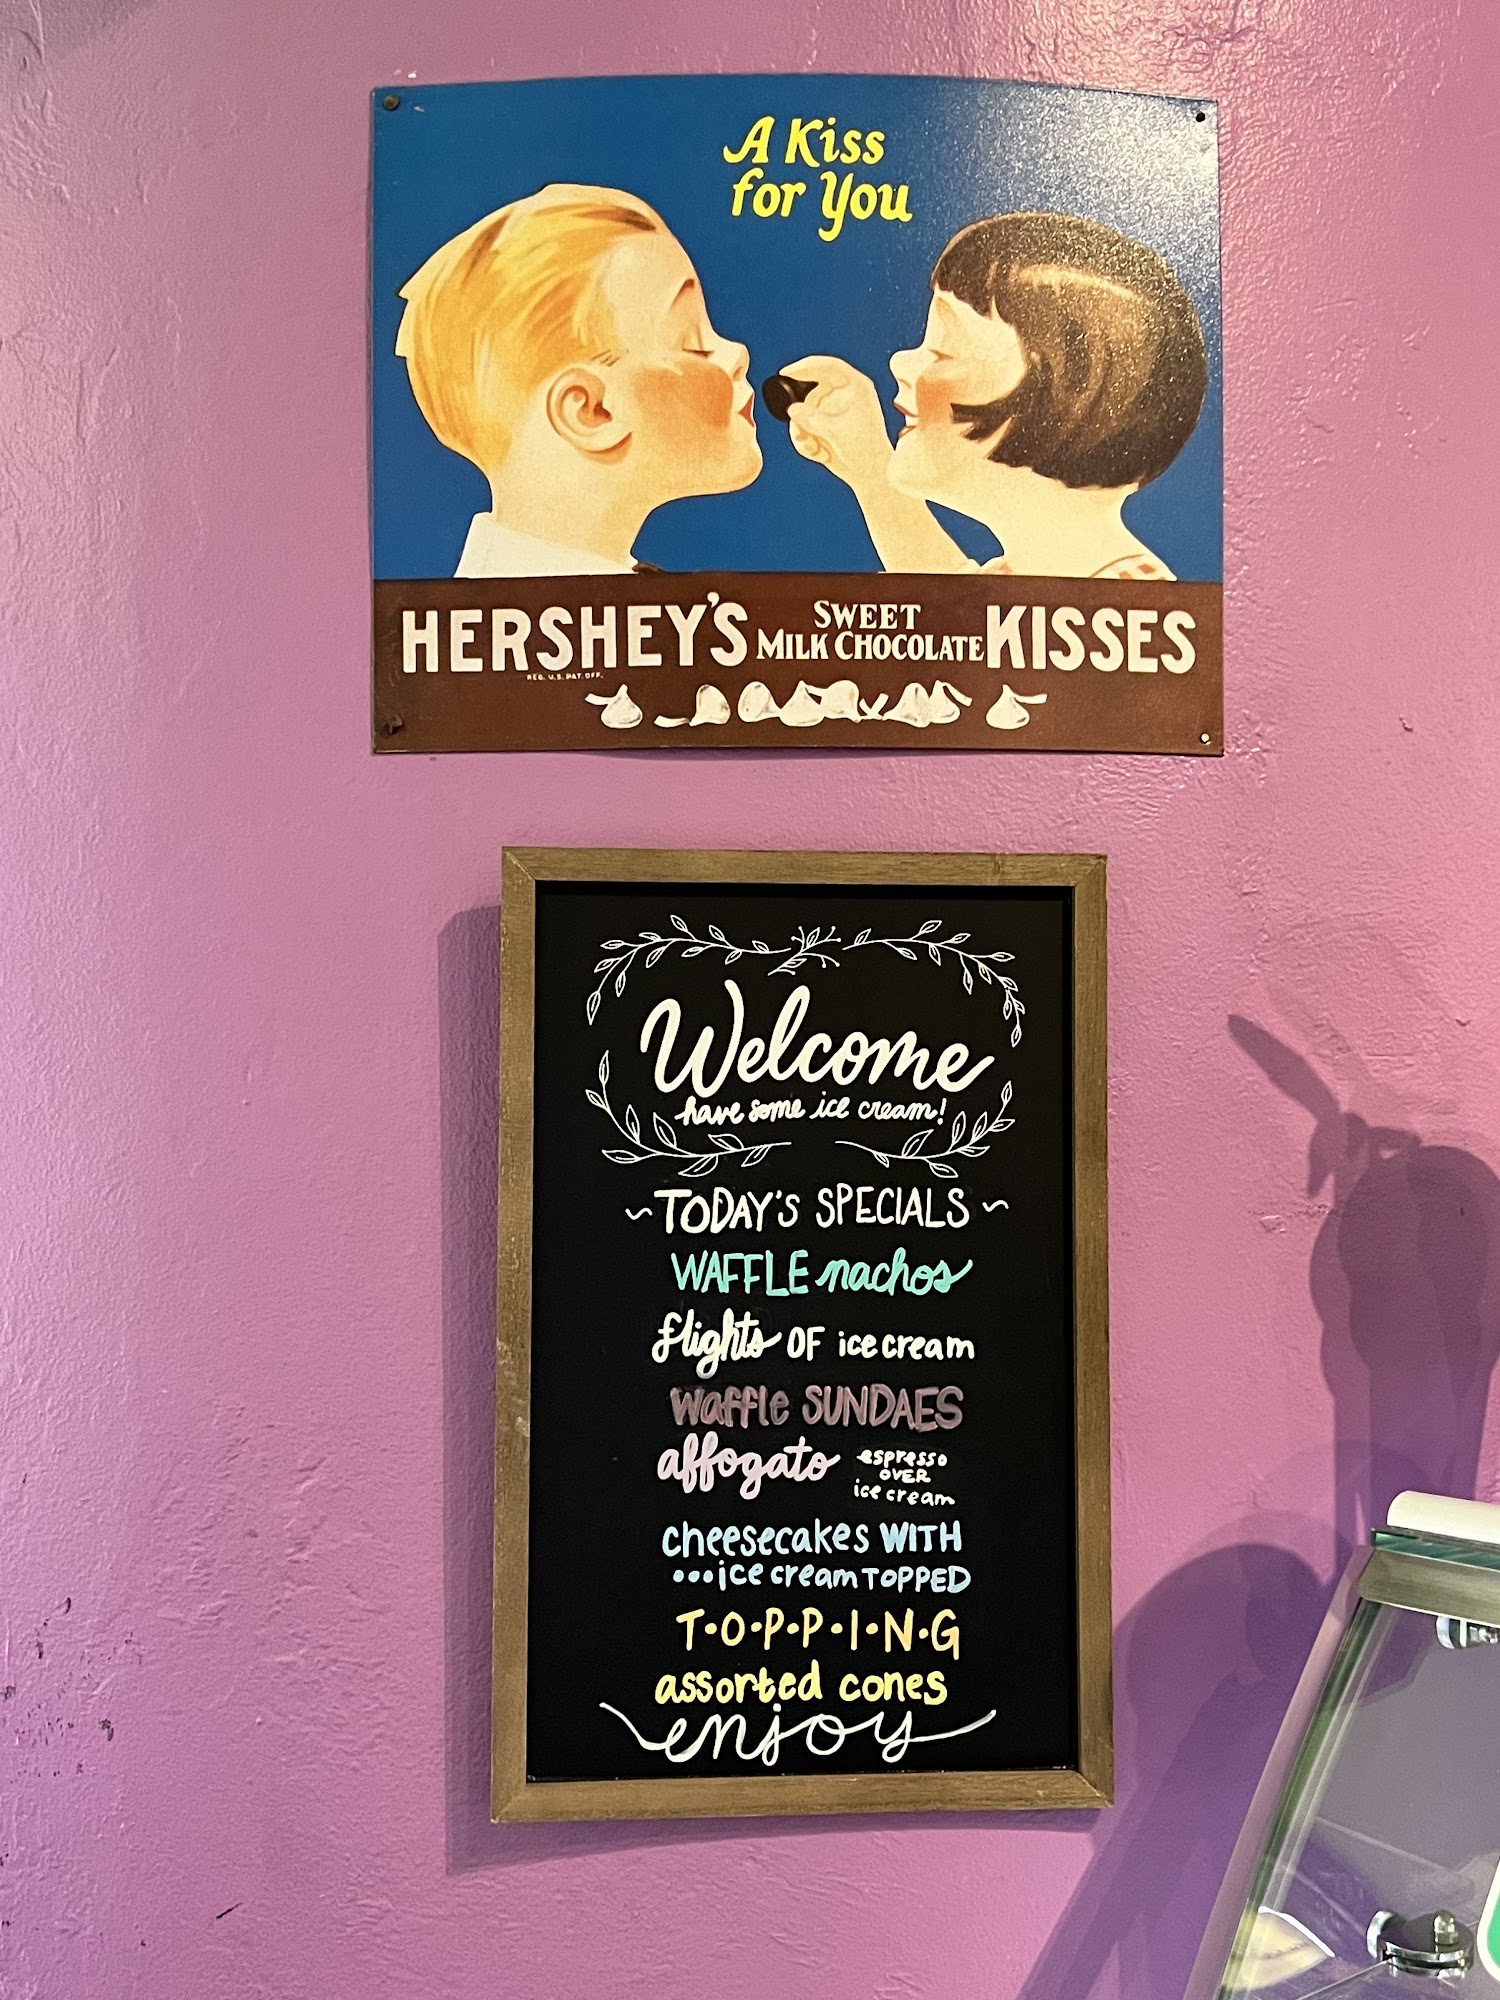 A Kiss
for You
HERSHEY'S SWEET MILK CHOCOLATE KISSES
REG. U.S. PAT. OFF.
Welcome
have some ice cream!
~TODAY'S SPECIALS~
WAFFLE nachos
flights OF ice cream
waffle SUNDAES
affogato espresso OVER ice cream
cheesecakes WITH
...ice cream TOPPED
T•O•P•P•I•N•G
assorted cones
enjoy